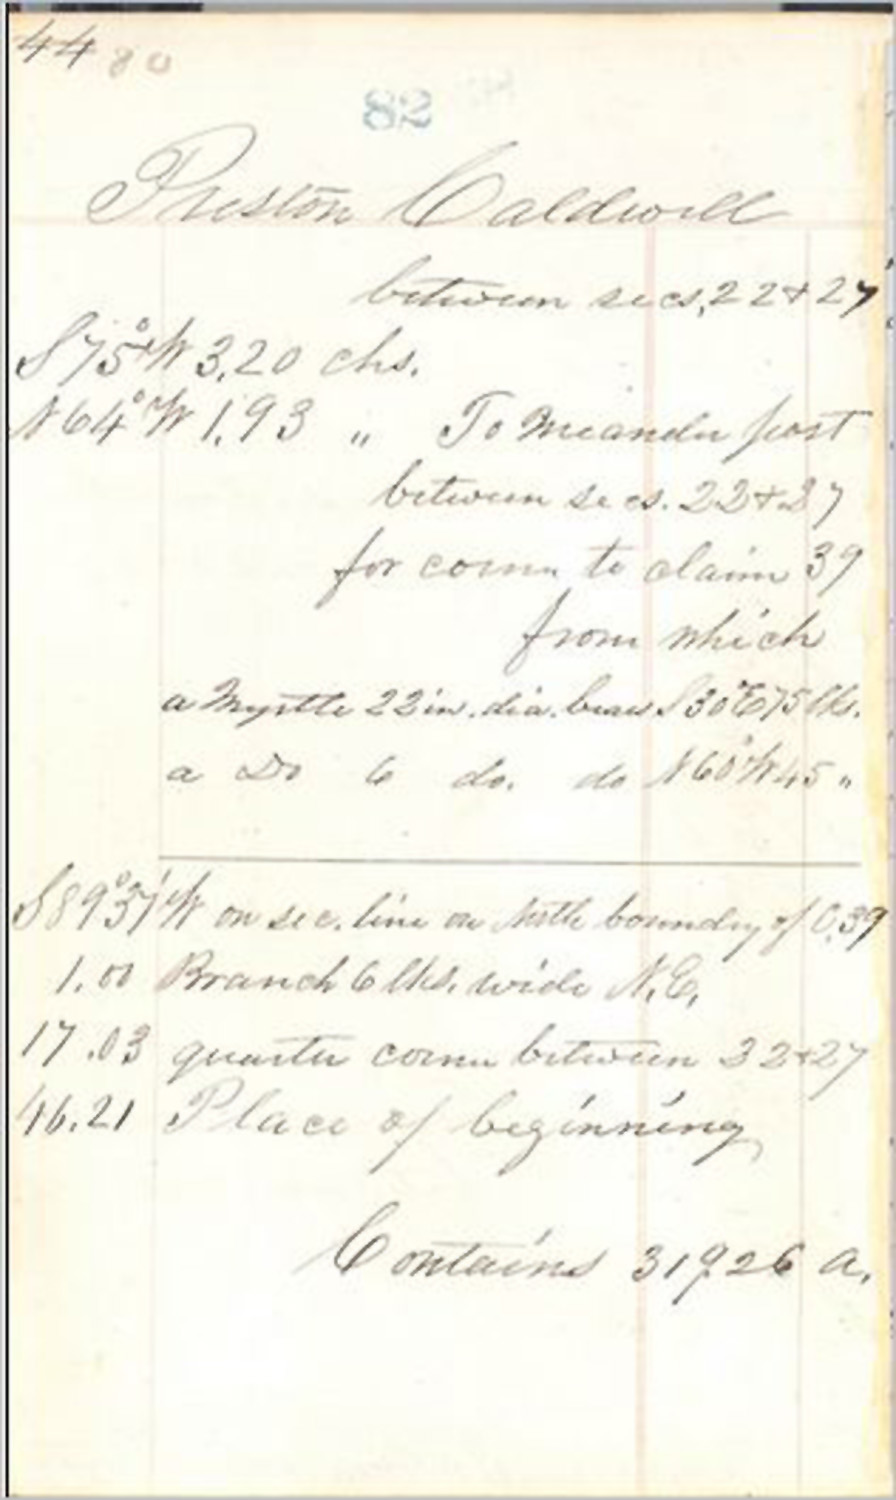 44 80
82
Preston Caldwell
between secs, 22 & 27
S75°W 3.20 chs.
N64°W 1.93 " To Meander post
between secs. 22 & 27
for corner to claim 39
from which
a Myrtle 22 in. dia. bears S30°E 75 lks.
a Do 6 do. do N60°W 45 "
S89°37'W on sec. line on North boundry of C.39
1.00 Branch 6 lks. wide N.E.
17.03 quarter corner between 22 & 27
46.21 Place of beginning
Contains 319.26 A.